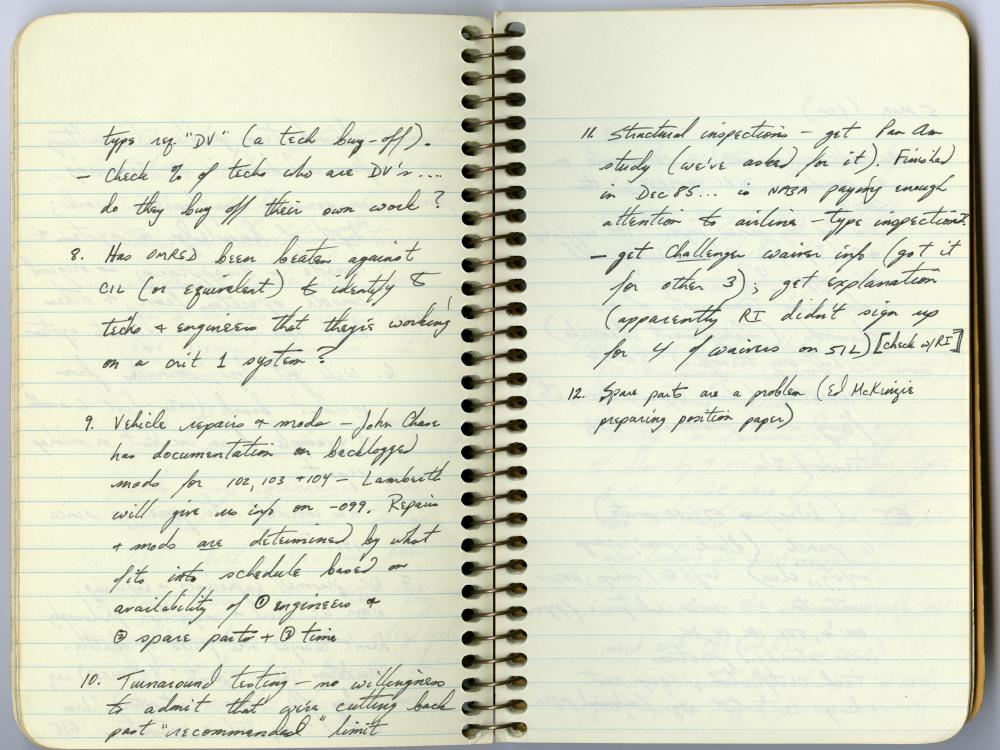 type req. "DV" (a tech buy-off).
— Check % of techs who are DV's....
do they buy off their own work?
8. Has OMRSD been beaten against
CIL (or equivalent) to identify to
techs + engineers that they're working
on a crit 1 system?
9. Vehicle repairs + mods — John Chase
has documentation on backlogged
mods for 102, 103 + 104 — Lamberth
will give us info on -099. Repairs
+ mods are determined by what
fits into schedule based on
availability of ① engineers +
② spare parts + ③ time
10. Turnaround testing — no willingness
to admit that we're cutting back
past "recommended" limit
11. Structural inspections — get Pan Am
study (we've asked for it). Finished
in Dec 85... is NASA paying enough
attention to airline-type inspections?
— get Challenger waiver info (got it
for other 3); get explanation
(apparently RI didn't sign up
for 4 of waivers on 51L) [check w/RI]
12. Spare parts are a problem (Ed McKinzie
preparing position paper)